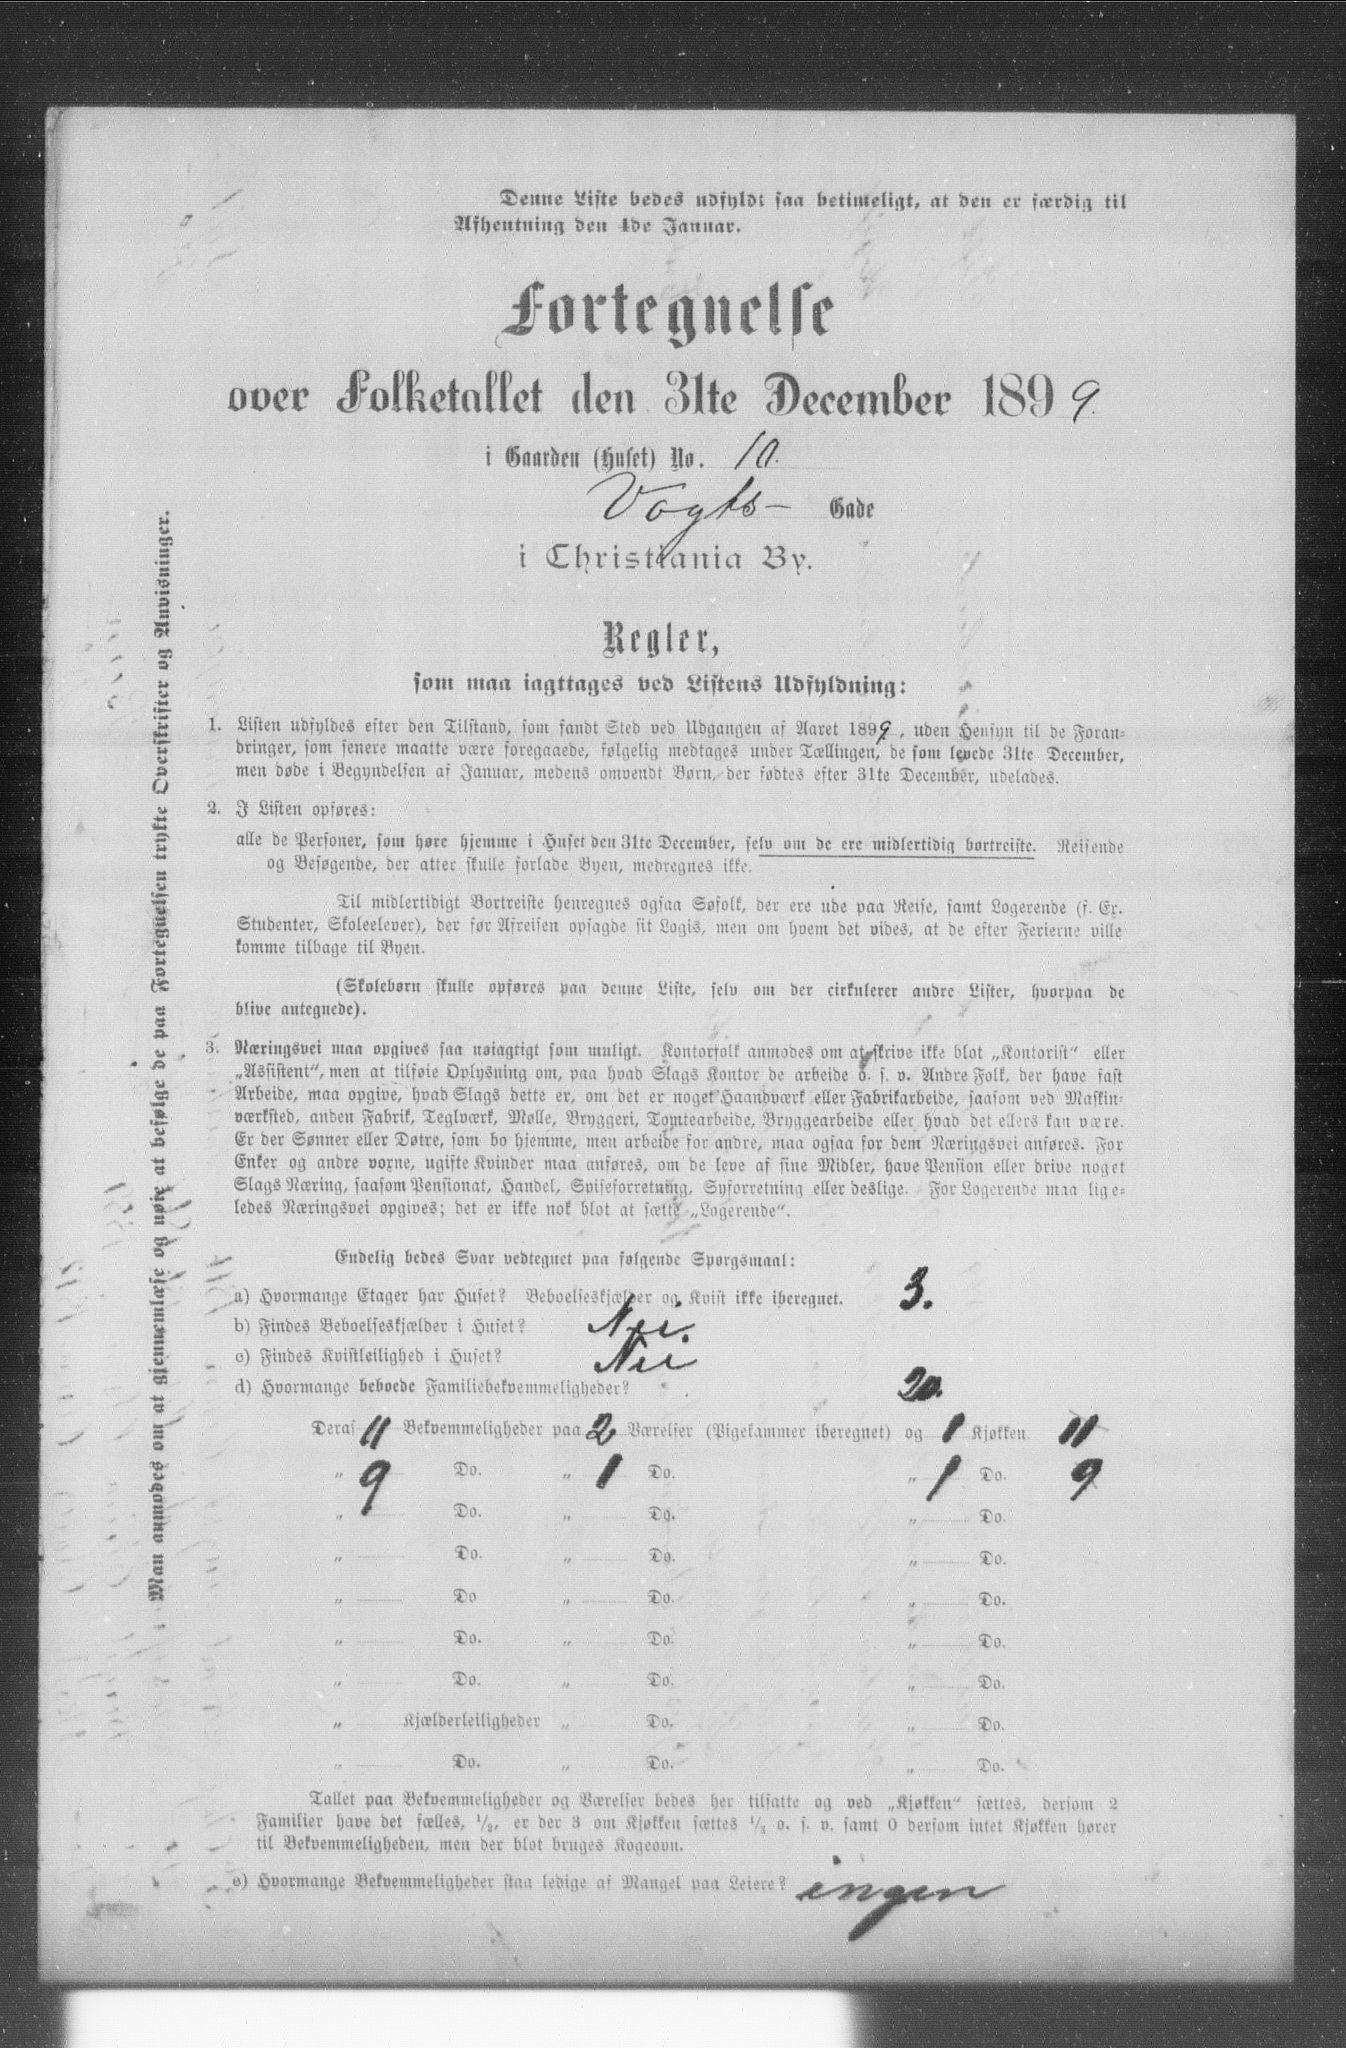 Denne Liste bedes udfyldt saa betimeligt, at den er færdig til
Afhentning den 4de Januar.
Fortegnelse
over Folketallet den 31te December 1899.
i Gaarden (Huset) No. 10.
Vogts- Gade
i Christiania By.
Regler,
som maa iagttages ved Listens Udfyldning:
1. Listen udfyldes efter den Tilstand, som fandt Sted ved Udgangen af Aaret 1899, uden Hensyn til de Foran-
dringer, som senere maatte være foregaaede, følgelig medtages under Tællingen, de som levede 31te December,
men døde i Begyndelsen af Januar, medens omvendt Børn, der fødtes efter 31te December, udelades.
2. I Listen opføres:
alle de Personer, som høre hjemme i Huset den 31te December, selv om de ere midlertidig bortreiste. Reisende
og Besøgende, der atter skulle forlade Byen, medregnes ikke.
Til midlertidigt Bortreiste henregnes ogsaa Søfolk, der ere ude paa Reise, samt Logerende (f. Ex.
Studenter, Skoleelever), der før Afreisen opsagde sit Logis, men om hvem det vides, at de efter Ferierne ville
komme tilbage til Byen.
(Skolebørn skulle opføres paa denne Liste, selv om der cirkulerer andre Lister, hvorpaa de
blive antegnede).
3. Næringsvei maa opgives saa nøiagtigt som muligt. Kontorfolk anmodes om at skrive ikke blot „Kontorist“ eller
„Assistent“, men at tilføie Oplysning om, paa hvad Slags Kontor de arbeide o. s. v. Andre Folk, der have fast
Arbeide, maa opgive, hvad Slags dette er, om det er noget Haandværk eller Fabrikarbeide, saasom ved Maskin-
værksted, anden Fabrik, Teglværk, Mølle, Bryggeri, Tomtearbeide, Bryggearbeide eller hvad det ellers kan være.
Er der Sønner eller Døtre, som bo hjemme, men arbeide for andre, maa ogsaa for dem Næringsvei anføres. For
Enker og andre voxne, ugifte Kvinder maa anføres, om de leve af sine Midler, have Pension eller drive noget
Slags Næring, saasom Pensionat, Handel, Spiseforretning, Syforretning eller deslige. For Logerende maa lige-
ledes Næringsvei opgives; det er ikke nok blot at sætte „Logerende“.
Endelig bedes Svar vedtegnet paa følgende Spørgsmaal:
a) Hvormange Etager har Huset? Beboelseskjælder og Kvist ikke iberegnet. 3.
b) Findes Beboelseskjælder i Huset? Nei.
c) Findes Kvistleilighed i Huset? Nei
d) Hvormange beboede Familiebekvemmeligheder? 20.
Deraf 11 Bekvemmeligheder paa 2 Værelser (Pigekammer iberegnet) og 1 Kjøkken 11
„ 9 Do. „ 1 Do. „ 1 Do. 9
„ Do. „ Do. „ Do.
„ Do. „ Do. „ Do.
„ Do „ Do. „ Do.
„ Do. „ Do. „ Do.
„ Do. „ Do. „ Do.
„ Kjælderleiligheder „ Do. „ Do.
„ Do. „ Do. „ Do.
Tallet paa Bekvemmeligheder og Værelser bedes her tilsatte og ved „Kjøkken“ sættes, dersom 2
Familier have det fælles, 1/2, er der 3 om Kjøkken sættes 1/3 o. s. v. samt 0 dersom intet Kjøkken hører
til Bekvemmeligheden, men der blot bruges Kogeovn.
e) Hvormange Bekvemmeligheder staa ledige af Mangel paa Leiere? ingen
Man anmodes om at gjennemlæse og nøie at besøge de paa Fortegnelsen trykte Overskrifter og Anvisninger.